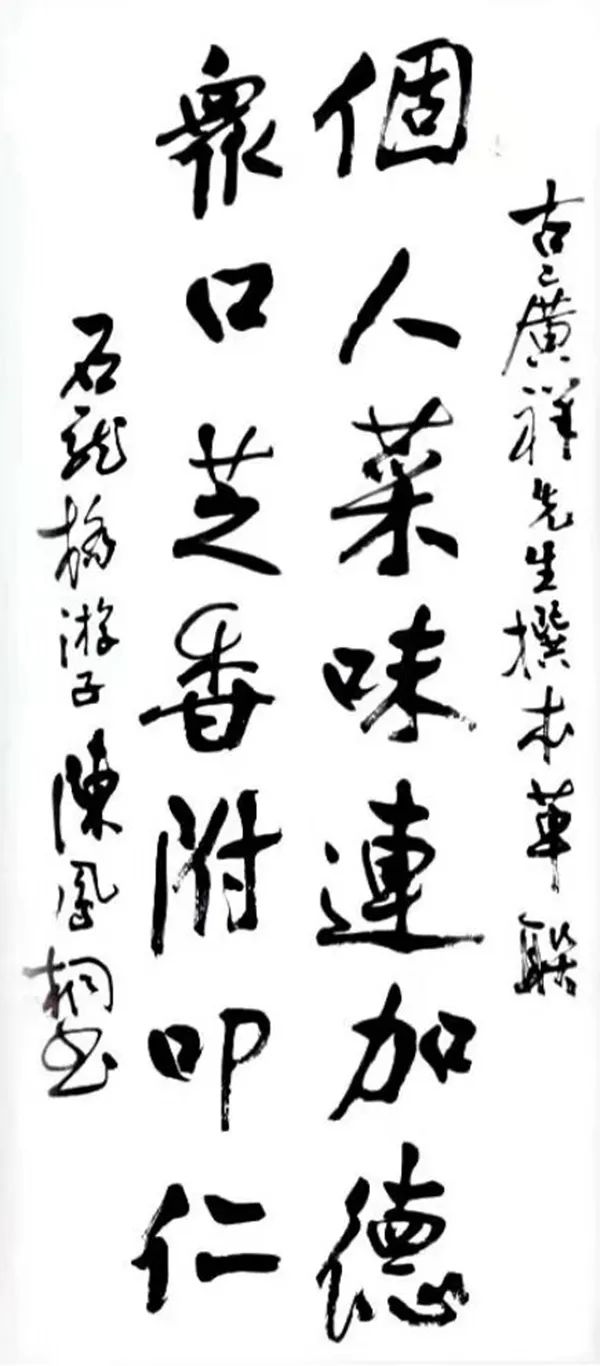 古廣祥先生撰本草聯
個人菜味連加德
眾口芝香附叩仁
石龍橋游子陳鳳桐书